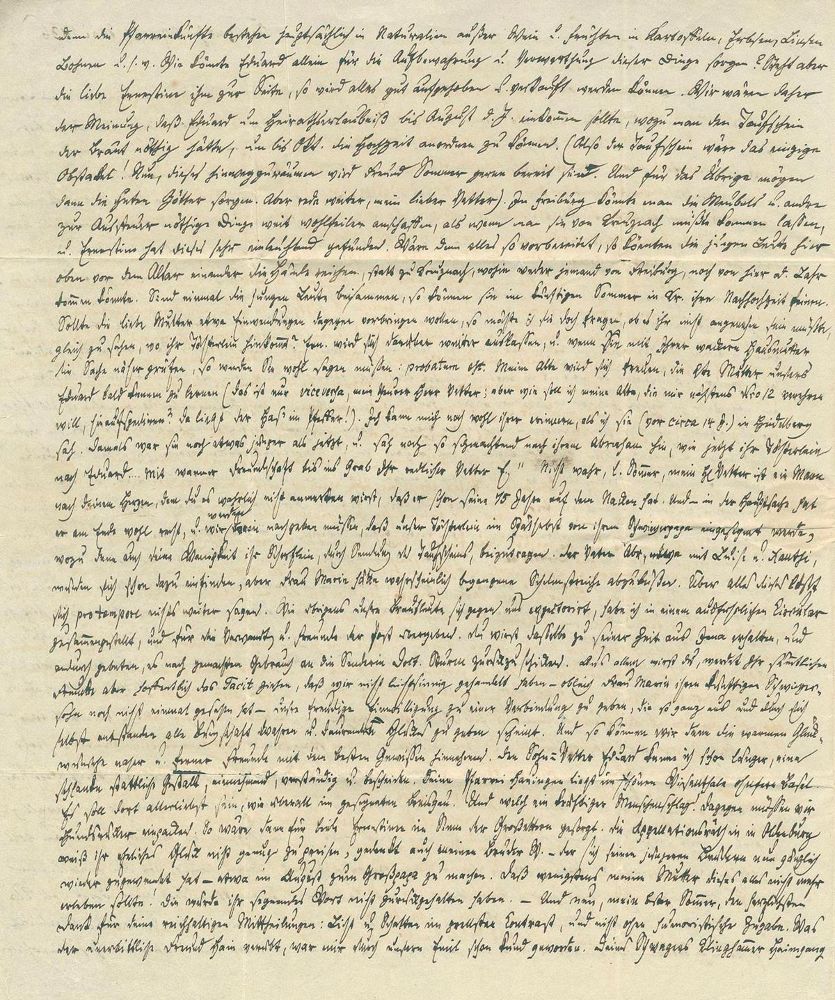 denn die Pfarreinkünfte bestehen hauptsächlich in Naturalien außer Wein u. Früchten in Kartoffeln, Erbsen, Linsen
Bohnen u. s. w. Wie könnte Eduard allein für die Aufbewahrung u. Verwerthung dieser Dinge sorgen? Steht aber
die liebe Ernestine ihm zur Seite, so wird alles gut aufgehoben u. verkauft werden können. Wir wären daher
der Meinung, daß Eduard um Heirathserlaubniß bis August d. J. einkommen sollte, wozu man den Taufschein
der Braut nöthig hätte, um bis Okt. die Hochzeit anordnen zu können. (Also der Taufschein wäre das einzige
Obstakel! Nun, dieses hinwegzuräumen wird Freund Sommer gern bereit sein. Und für das Übrige mögen
dann die guten Götter sorgen. Aber rede weiter, mein lieber Vetter). In Freiburg könnte man die Meubels u. andre
zur Aussteuer nöthige Dinge weit wohlfeiler anschaffen, als wenn man sie von Creuznach müßte kommen lassen,
u. Ernestine hat dieses sehr einleuchtend gefunden. Wäre dann alles so vorbereitet, so könnten die jungen Leute hier
oben vor dem Altar einander die Hände reichen, statt zu Creuznach, wohin weder jemand von Freiburg, noch von hier od. Lahr
kommen könnte. Sind einmal die jungen Leute beisammen, so können sie im künftigen Sommer in Cr. ihre Nachhochzeit feiern.
Sollte die liebe Mutter etwa Einwendungen dagegen vorbringen wollen, so möchte ich sie doch fragen, ob es ihr nicht angenehm sein müßte,
gleich zu sehen, wo ihr Töchterlein hinkommt? Ern. wird sich darüber weiter auslassen, u. wenn Sie mit Ihrer wackern Hausmutter
die Sache näher prüfen, so werden Sie wohl sagen müssen: probatum est. Meine Alte wird sich freuen, die Mutter unsers
Eduard bald kennen zu lernen (das ist nur viceversa, mein theurer Herr Vetter; aber wie soll ich meine Alte, die mir nächstens
will, hinaufspediren? da liegt der Has im Pfeffer!). Ich kann mich noch wohl ihrer erinnern, als ich sie (vor circa 14 J.) in Heidelberg
sah. Damals war sie noch etwas jünger als jetzt u. sah noch so schmachtend nach ihrem Abraham hin, wie jetzt ihr Töchterlein
nach Eduard... Mit warmer Freundschaft bis ins Grab Ihr redlicher Vetter E." Nicht wahr, l. Sommer, mein Vetter ist ein Mann
nach deinem Herzen, dem du es wahrlich nicht anmerken wirst, daß er schon seine 75 Jahre auf dem Nacken hat. Und – in der Hauptsache hat
er am Ende wohl recht, u. wir werden nachgeben müssen, daß unser Töchterlein im von ihrem Schwiegerpapa eingesegnet werde,
wozu denn auch deine Wenigkeit ihr Scherflein, durch Sendung des Taufscheins, beizutragen. Der Vater mit Luise u. Xanthi,
würden sich schon dazu einfinden, aber Frau Maria hätte wahrscheinlich begangene Schelmstreiche abzubüßen. Über alles dieses läßt
sich pro tempore nichts weiter sagen. Wie übrigens unsre Brautleute sich gegen uns expectorirt, habe ich in einem ausführlichen Circular
zusammengestellt, und für die Verwandten u. Freunde der Post übergeben. Du wirst dasselbe zu seiner Zeit aus Jena erhalten, und
gebeten, es nach gemachtem Gebrauch an die Senderin zurückzuschicken. Aus allem wirst du, werdet Ihr sämtlichen
Freunde aber hoffentlich das Facit ziehen, daß wir nicht leichtsinnig gehandelt haben – obgleich Frau Maria ihren künftigen Schwieger-
sohn noch nicht einmal gesehen hat – unsre freudige Einwilligung zu einer Verbindung zu geben, die so ganz aus und durch sich
selbst entstanden alle Bürgschaft wahren u. dauernden Glückes zu geben scheint. Und so können wir denn die warmen Glück-
wünsche naher u. ferner Freunde mit dem besten Gewissen hinnehmen. Den Sohn – Vetter Eduard kenne ich schon länger, eine
schlanke stattliche Gestalt, einnehmend, verständig u. bescheiden. Seine Pfarrei Haningen liegt im schönen Wiesenthale ohnfern Basel.
Es soll dort allerliebst sein, wie überall im gesegneten Breisgau. Und welch ein kräftiger Menschenschlag! dagegen müssen wir
Hundsrücker einpacken. So wäre denn für beide Ernestinen im Sinne der Großeltern gesorgt. Die Appellationsräthin in Oldenburg
weiß ihr eheliches Glück nicht genug zu preisen, gedenkt auch meinen Bruder W. – der sich seinen jüngeren Brüdern nun gänzlich
wieder zugewendet hat – etwa im August zum Großpapa zu machen. Daß wenigstens meine Mutter dieses alles nicht mehr
erleben sollte! Sie würde ihr segnendes Wort nicht zurückgehalten haben. – Und nun, mein lieber Sommer, den herzlichsten
Dank für deine reichhaltigen Mittheilungen: Licht u. Schatten im grellsten Contrast, und nicht ohne humoristische Zugabe. Was
der unerbittliche Freund Hain verübt, war mir durch unsern Emil schon kund geworden. Deines Schwagers Klinghammer Heimgang